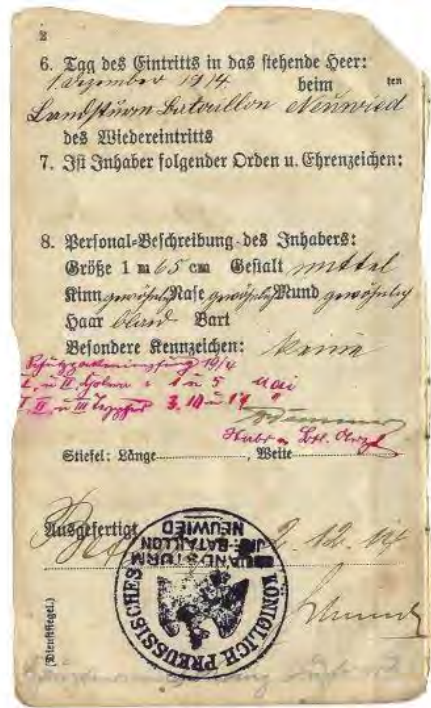 2
6. Tag des Eintritts in das stehende Heer:
1. Dezember 1914. beim ten
Landsturm Bataillon Neuwied
des Wiedereintritts
7. Ist Inhaber folgender Orden u. Ehrenzeichen:
8. Personal-Beschreibung des Inhabers:
Größe 1 m 65 cm Gestalt mittel
Kinn gewöhnlich Nase gewöhnlich Mund gewöhnlich
Haar blond Bart
Besondere Kennzeichen: keine
Schutzpockenimpfung
I. u II. Cholera 1 u 5 Mai
I. II u III Typhus 3. 10 u 17 "
Stiefel: Länge , Weite
Ausgefertigt 2. 12. 14
KÖNIGLICH PREUSSISCHES
LANDSTURM
INF-BATAILLON
NEUWIED
(Dienstsiegel.)